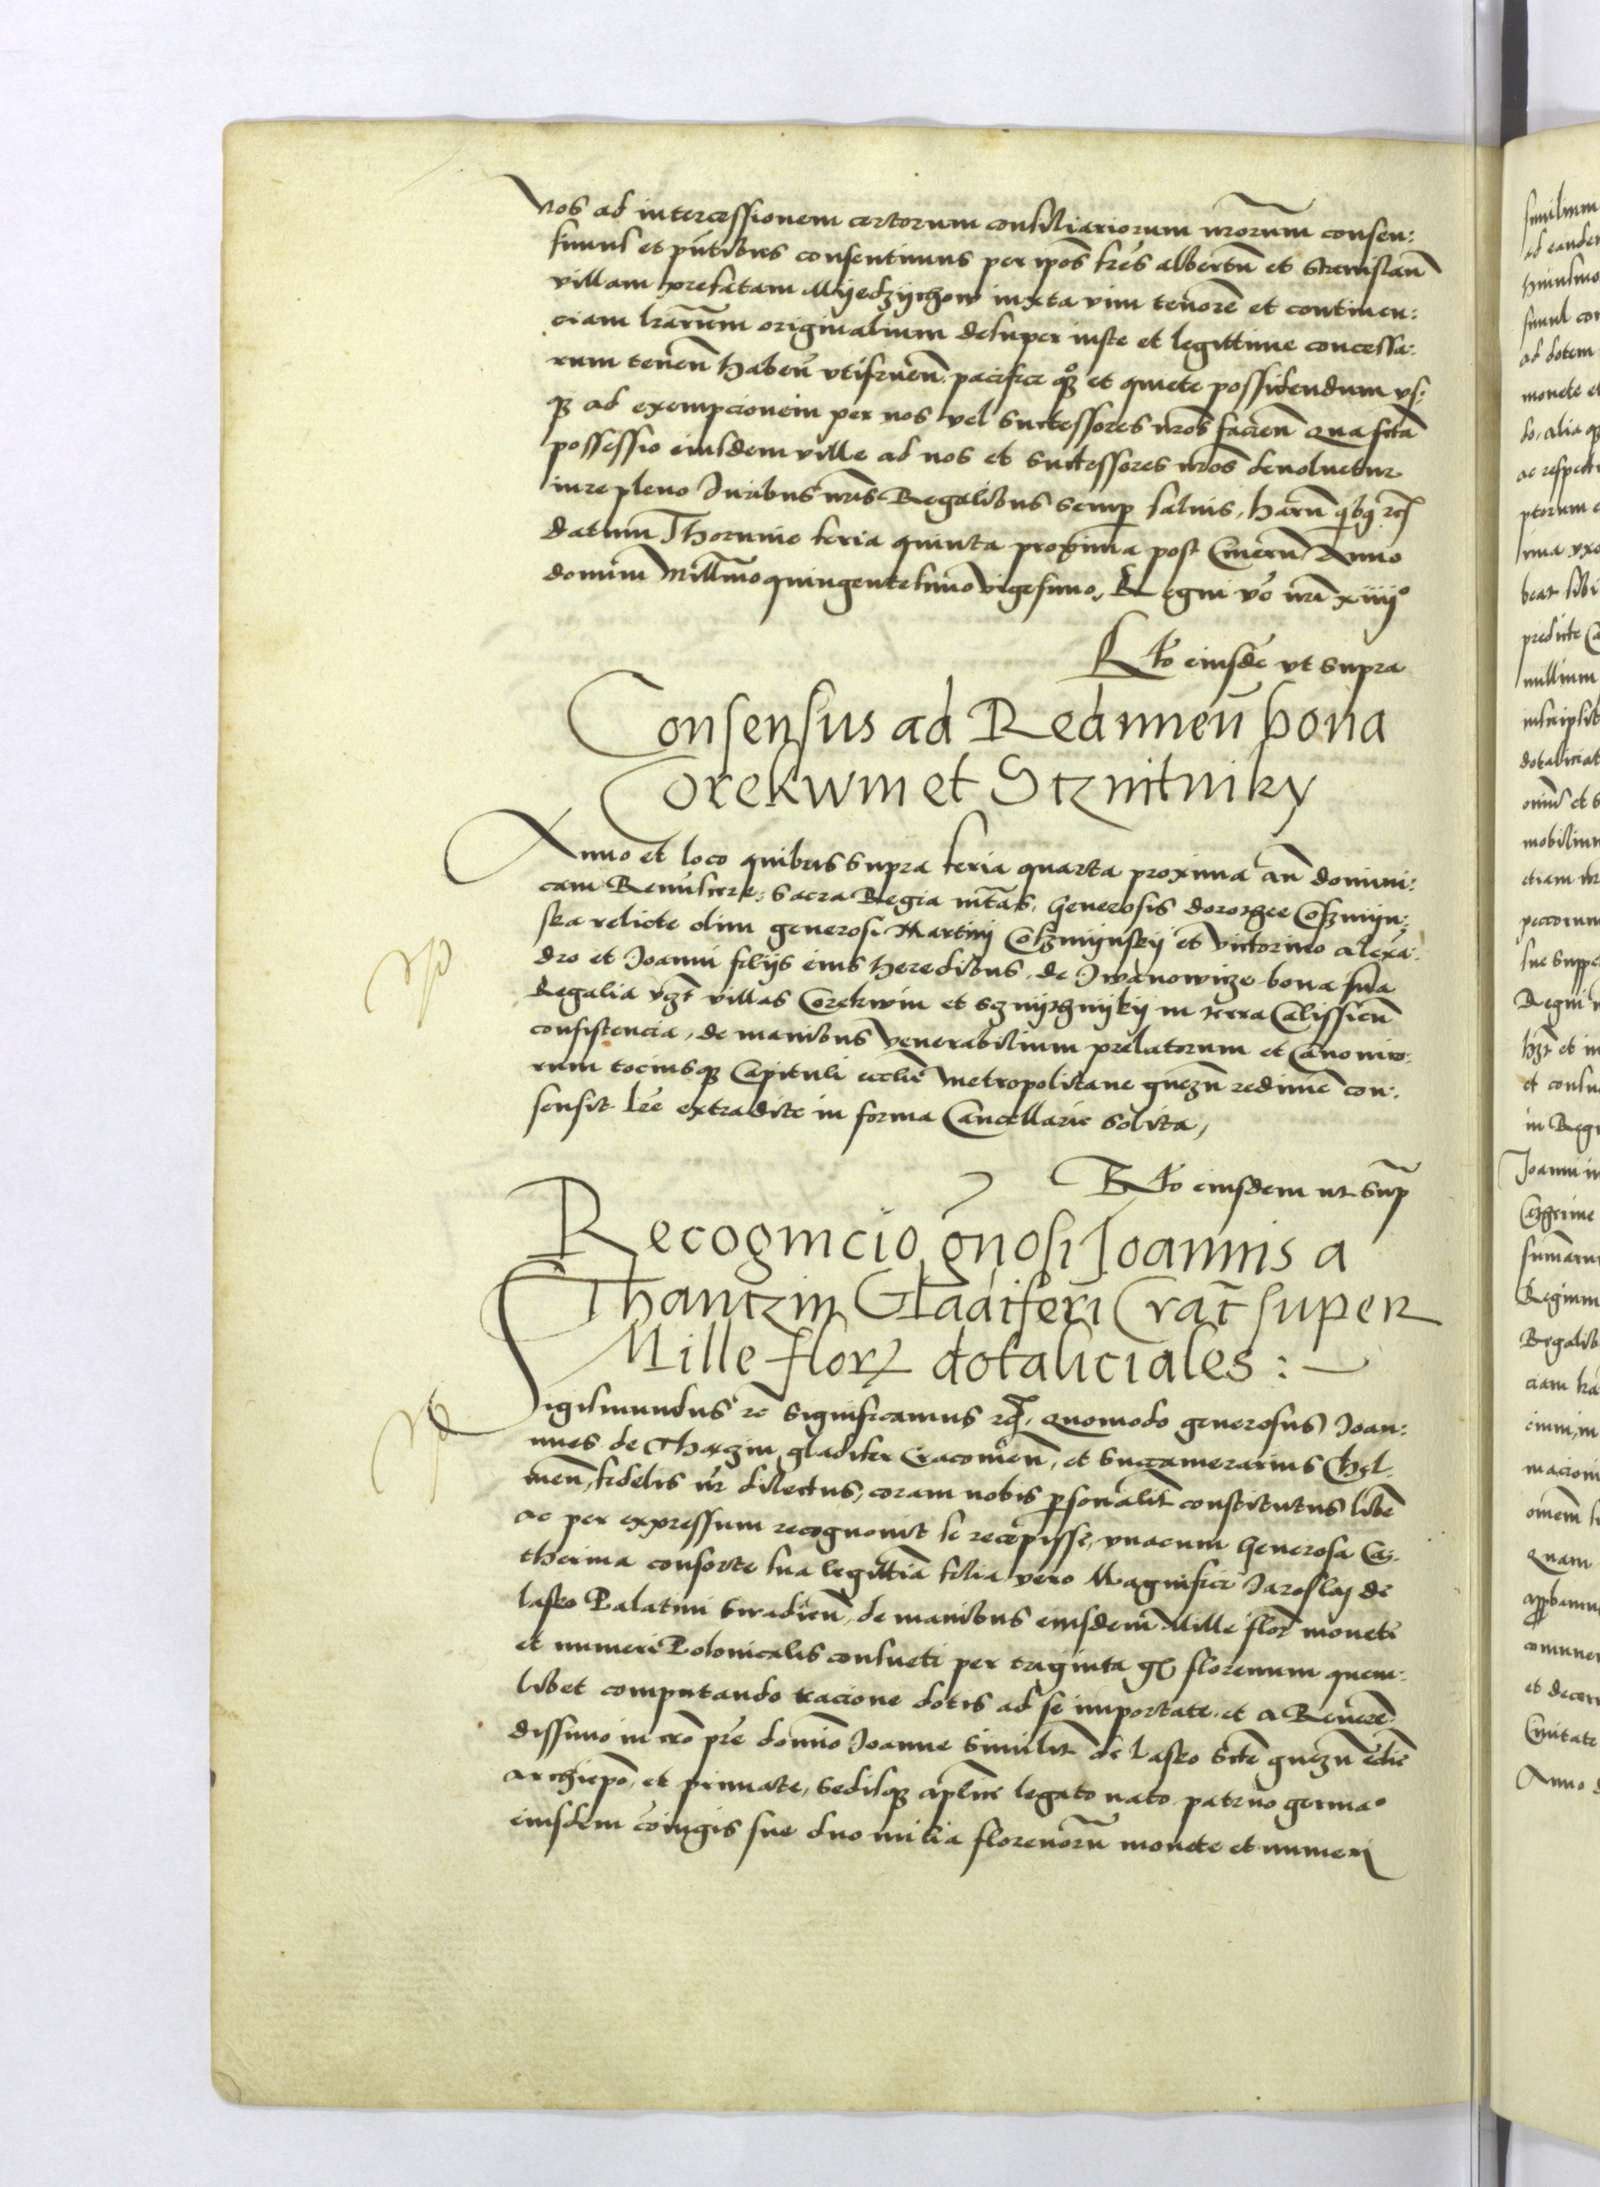 Nos ad intercessionem certorum consiliariorum nrorum consen:
simus et pntibus consentimus per ipos fres albertu et Stanislau
villam prefatam Myedzychow iuxta vim tenore et continen:
ciam lrarum originalium desuper iuste et legittime concessa:
rum tenen haben utifruen pacifice qz et quiete possidendum us:
qz ad exempcionem per nos vel successores nros facien qua fcta
possessio eiusdem ville ad nos et successores nros devoluetur
iure pleno Iuribus nris Regalibus semp salvis, haru qibz rc
datum Thorunie feria quinta proxima post Cineru Anno
domini Millmo quingentesimo vigesimo, Regni vo nri xiiij°
Rlo eiusde ut supra
Consensus ad Redimen bona
Corekwin et Stznitniky
Anno et loco quibus supra feria quarta proxima an domini:
cam Reminiscere: Sacra Regia mtas, generosis dorothee Cosmyn:
ska relicte olim generosi Martini Cosmynskij et victorino alexa:
dro et Joanni filijs eius heredibus de Iwanowicze bona sua
Regalia vzt villas Corekwin et sznythnykij in terra Calissien
consistencia, de manibus venerabilium prelatorum et Canonico:
rum tociusqz Capituli ecclie metropolitane gnezn redime con:
sensit lre extradite in forma Cancellarie solita,
Rlo eiusdem ut sup
Recognicio gnosi Joannis a
Thantzin Gladiferi Crac super
Mille flor dotaliciales:
Sigismundus rc significamus rc, quomodo generosus Joan:
nnes de Thaczin gladifer Cracovien, et succamerarius Chel
men, fidelis nr dilectus, coram nobis psonalit constitutus libe
ac per expressum recognovit se recepisse, unacum generosa Ca:
therina consorte sua legittia filia vero Magnifici Jaroslaj de
lasko Palatini Siradien, de manibus eiusdem Mille flor monete
et numeri Polonicalis consueti per triginta gs florenum quem:
libet computando racione dotis ad se importate, et a Revere
dissimo in cro pre domino Joanne similit de lasko scte gnezn eclie
archiepo, et primate, sedisqz aplice legato nato patruo germa°
eiusdem coiugis sue duo milia florenoru monete et numeri